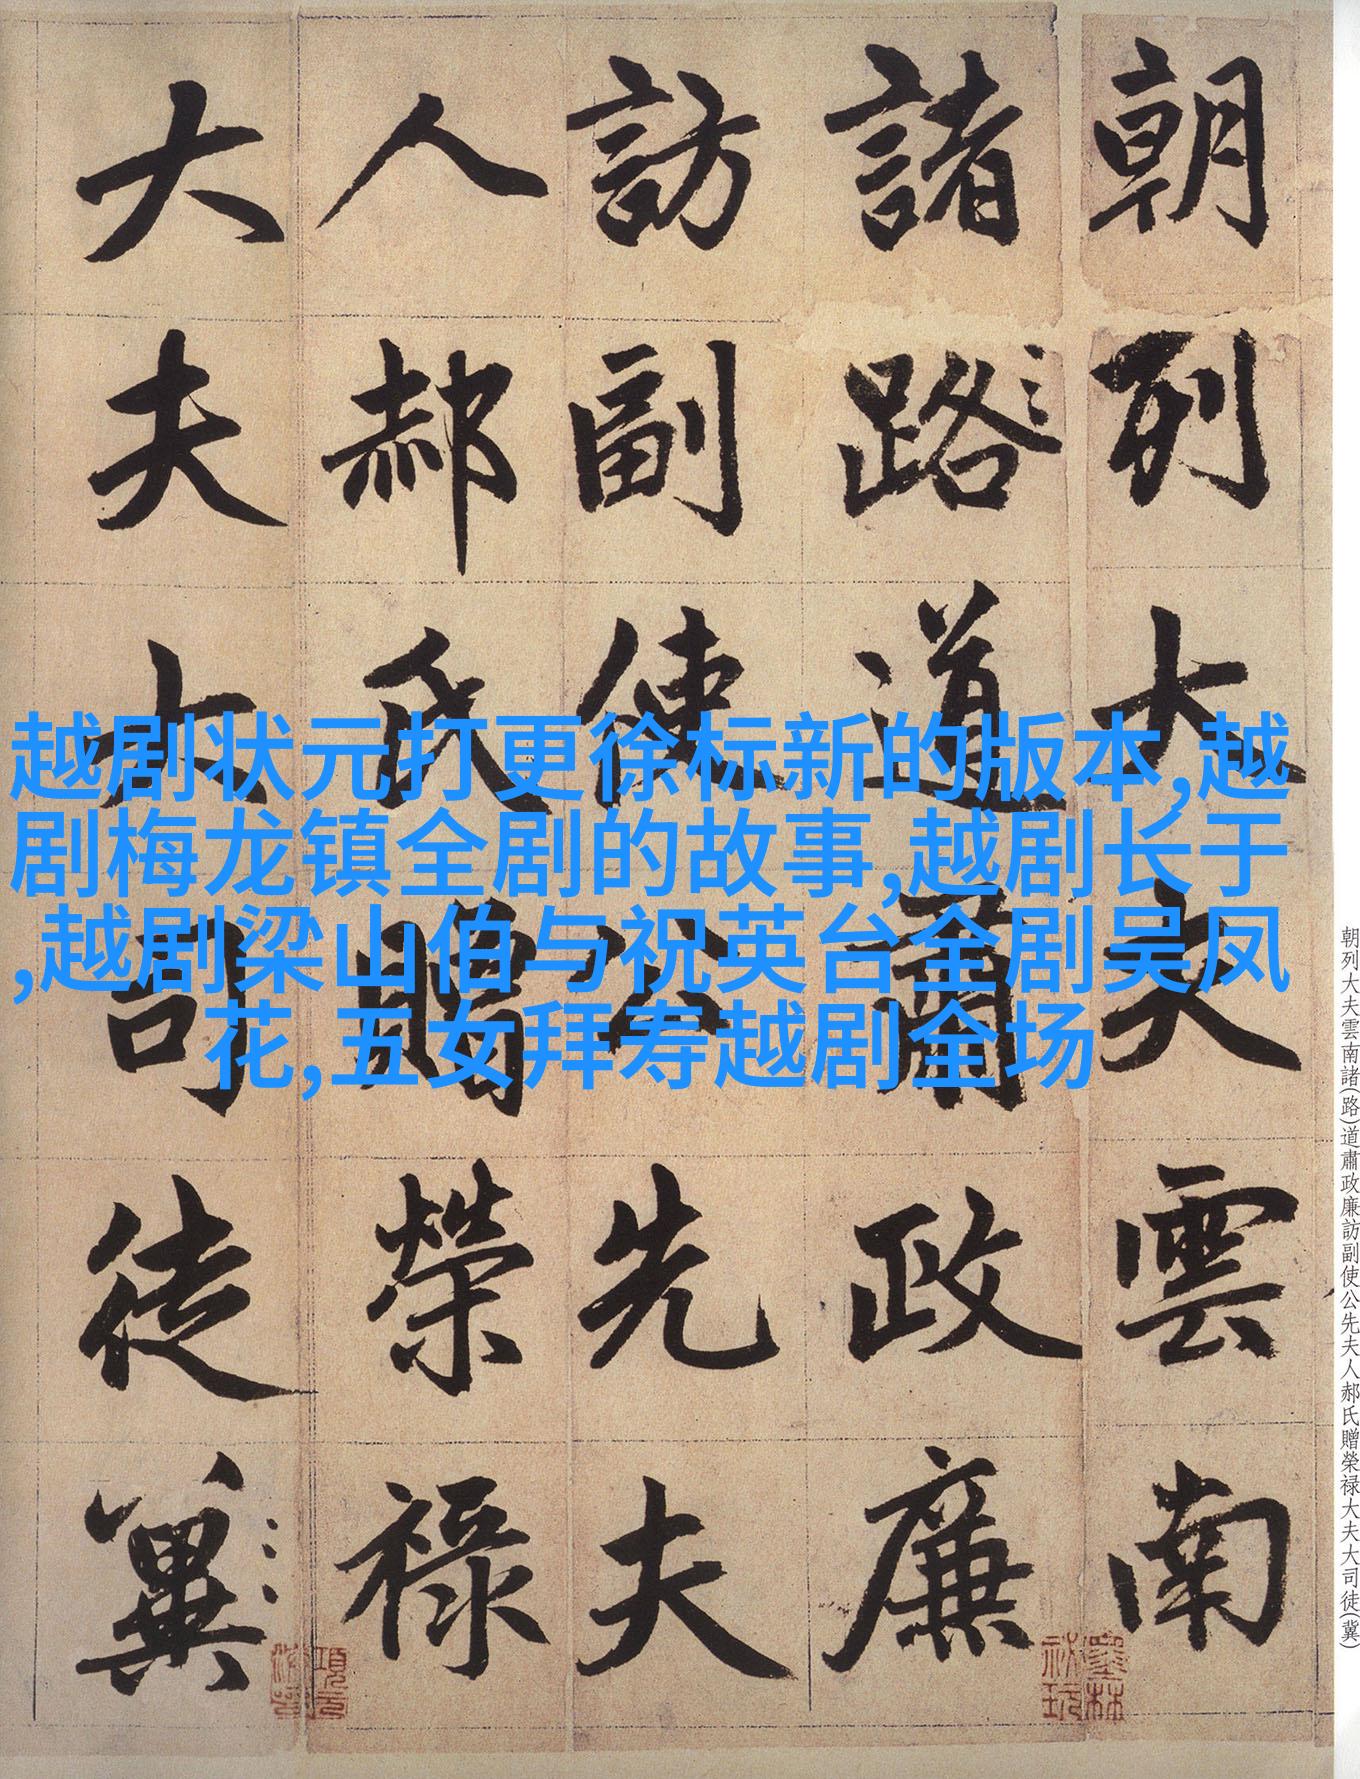 朝列大夫雲南
諸路道肅政廉
訪副使公先夫
人郝氏贈榮祿
大夫大司徒冀
越剧状元打更徐标新的版本,越
剧梅龙镇全剧的故事,越剧长于
,越剧梁山伯与祝英台全剧吴凤
花,五女拜寿越剧全场
朝列大夫雲南諸(路)道肅政廉訪副使公先夫人郝氏贈榮禄大夫大司徒(冀)